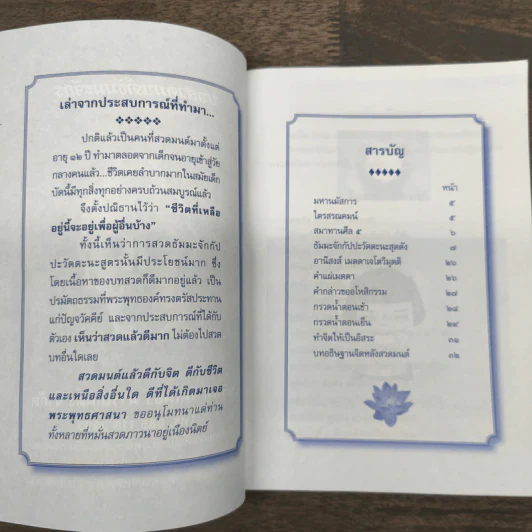 เล่าจากประสบการณ์ที่ทำมา...
ปกติแล้วเป็นคนที่สวดมนต์มาตั้งแต่
อายุ ๑๒ ปี ทำมาตลอดจากเด็กจนอายุเข้าสู่วัย
กลางคนแล้ว...ชีวิตเคยลำบากมากในสมัยเด็ก
บัดนี้มีทุกสิ่งทุกอย่างครบถ้วนสมบูรณ์แล้ว
จึงตั้งปณิธานไว้ว่า "ชีวิตที่เหลือ
อยู่นี้จะอยู่เพื่อผู้อื่นบ้าง"
ทั้งนี้เห็นว่าการสวดธัมมะจักกัป
ปะวัตตะนะสูตรนั้นมีประโยชน์มาก ซึ่ง
โดยเนื้อหาของบทสวดก็ดีมากอยู่แล้ว เป็น
ปรมัตถธรรมที่พระพุทธองค์ทรงตรัสประทาน
แก่ปัญจวัคคีย์ และจากประสบการณ์ที่ได้กับ
ตัวเอง เห็นว่าสวดแล้วดีมาก ไม่ต้องไปสวด
บทอื่นใดเลย
สวดมนต์แล้วดีกับจิต ดีกับชีวิต
และเหนือสิ่งอื่นใด ดีที่ได้เกิดมาเจอ
พระพุทธศาสนา ขออนุโมทนาแด่ท่าน
ทั้งหลายที่หมั่นสวดภาวนาอยู่เนืองนิตย์
สารบัญ
หน้า
มหานมัสการ ๕
ไตรสรณคมน์ ๕
สมาทานศีล ๕ ๖
ธัมมะจักกัปปะวัตตะนะสุตตัง ๗
อานิสงส์ เมตตาเจโตวิมุตติ ๒๖
คำแผ่เมตตา ๒๖
คำกล่าวขออโหสิกรรม ๒๗
กรวดน้ำตอนเช้า ๒๘
กรวดน้ำตอนเย็น ๒๙
ทำจิตให้เป็นอิสระ ๓๑
บทอธิษฐานจิตหลังสวดมนต์ ๓๒